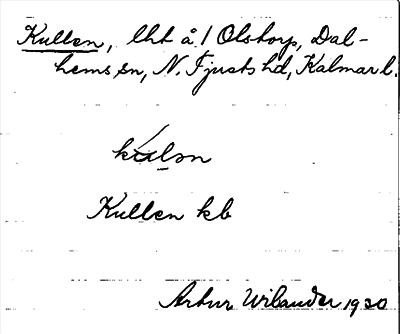 Kullen, lht å 1 Olstorp, Dal-
hems sn, N. Tjusts hd, Kalmar l.
kulən
Kullen kb
Artur Wilander 1920